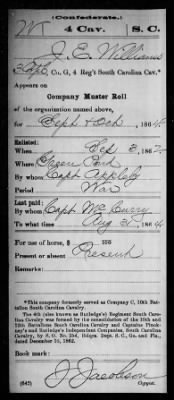 (Confederate.)
W 4 Cav. S.C.
J. E. Williams
Co. G, 4 Reg't South Carolina Cav.*
Appears on
Company Muster Roll
of the organization named above,
for Sept & Oct, 1864
Enlisted:
When 3, 186
Where Green Pond
By whom Capt Appleby
Period War
Last paid:
By whom Capt McCurry
To what time Aug 31, 1864
For use of horse, $
Present or absent Present
Remarks:
*This company formerly served as Company C, 10th Battalion South Carolina Cavalry.
The 4th (also known as Rutledge's) Regiment South Carolina Cavalry was formed by the consolidation of the 10th and 12th Battalions South Carolina Cavalry and Captains Pinckney's and Rutledge's Independent Companies, South Carolina Cavalry, by S. O. No. 254, Hdqrs. Dept. S. C., Ga. and Fla. dated December 16, 1862.
Book mark:
(642)
J Jacobson
Copyist.